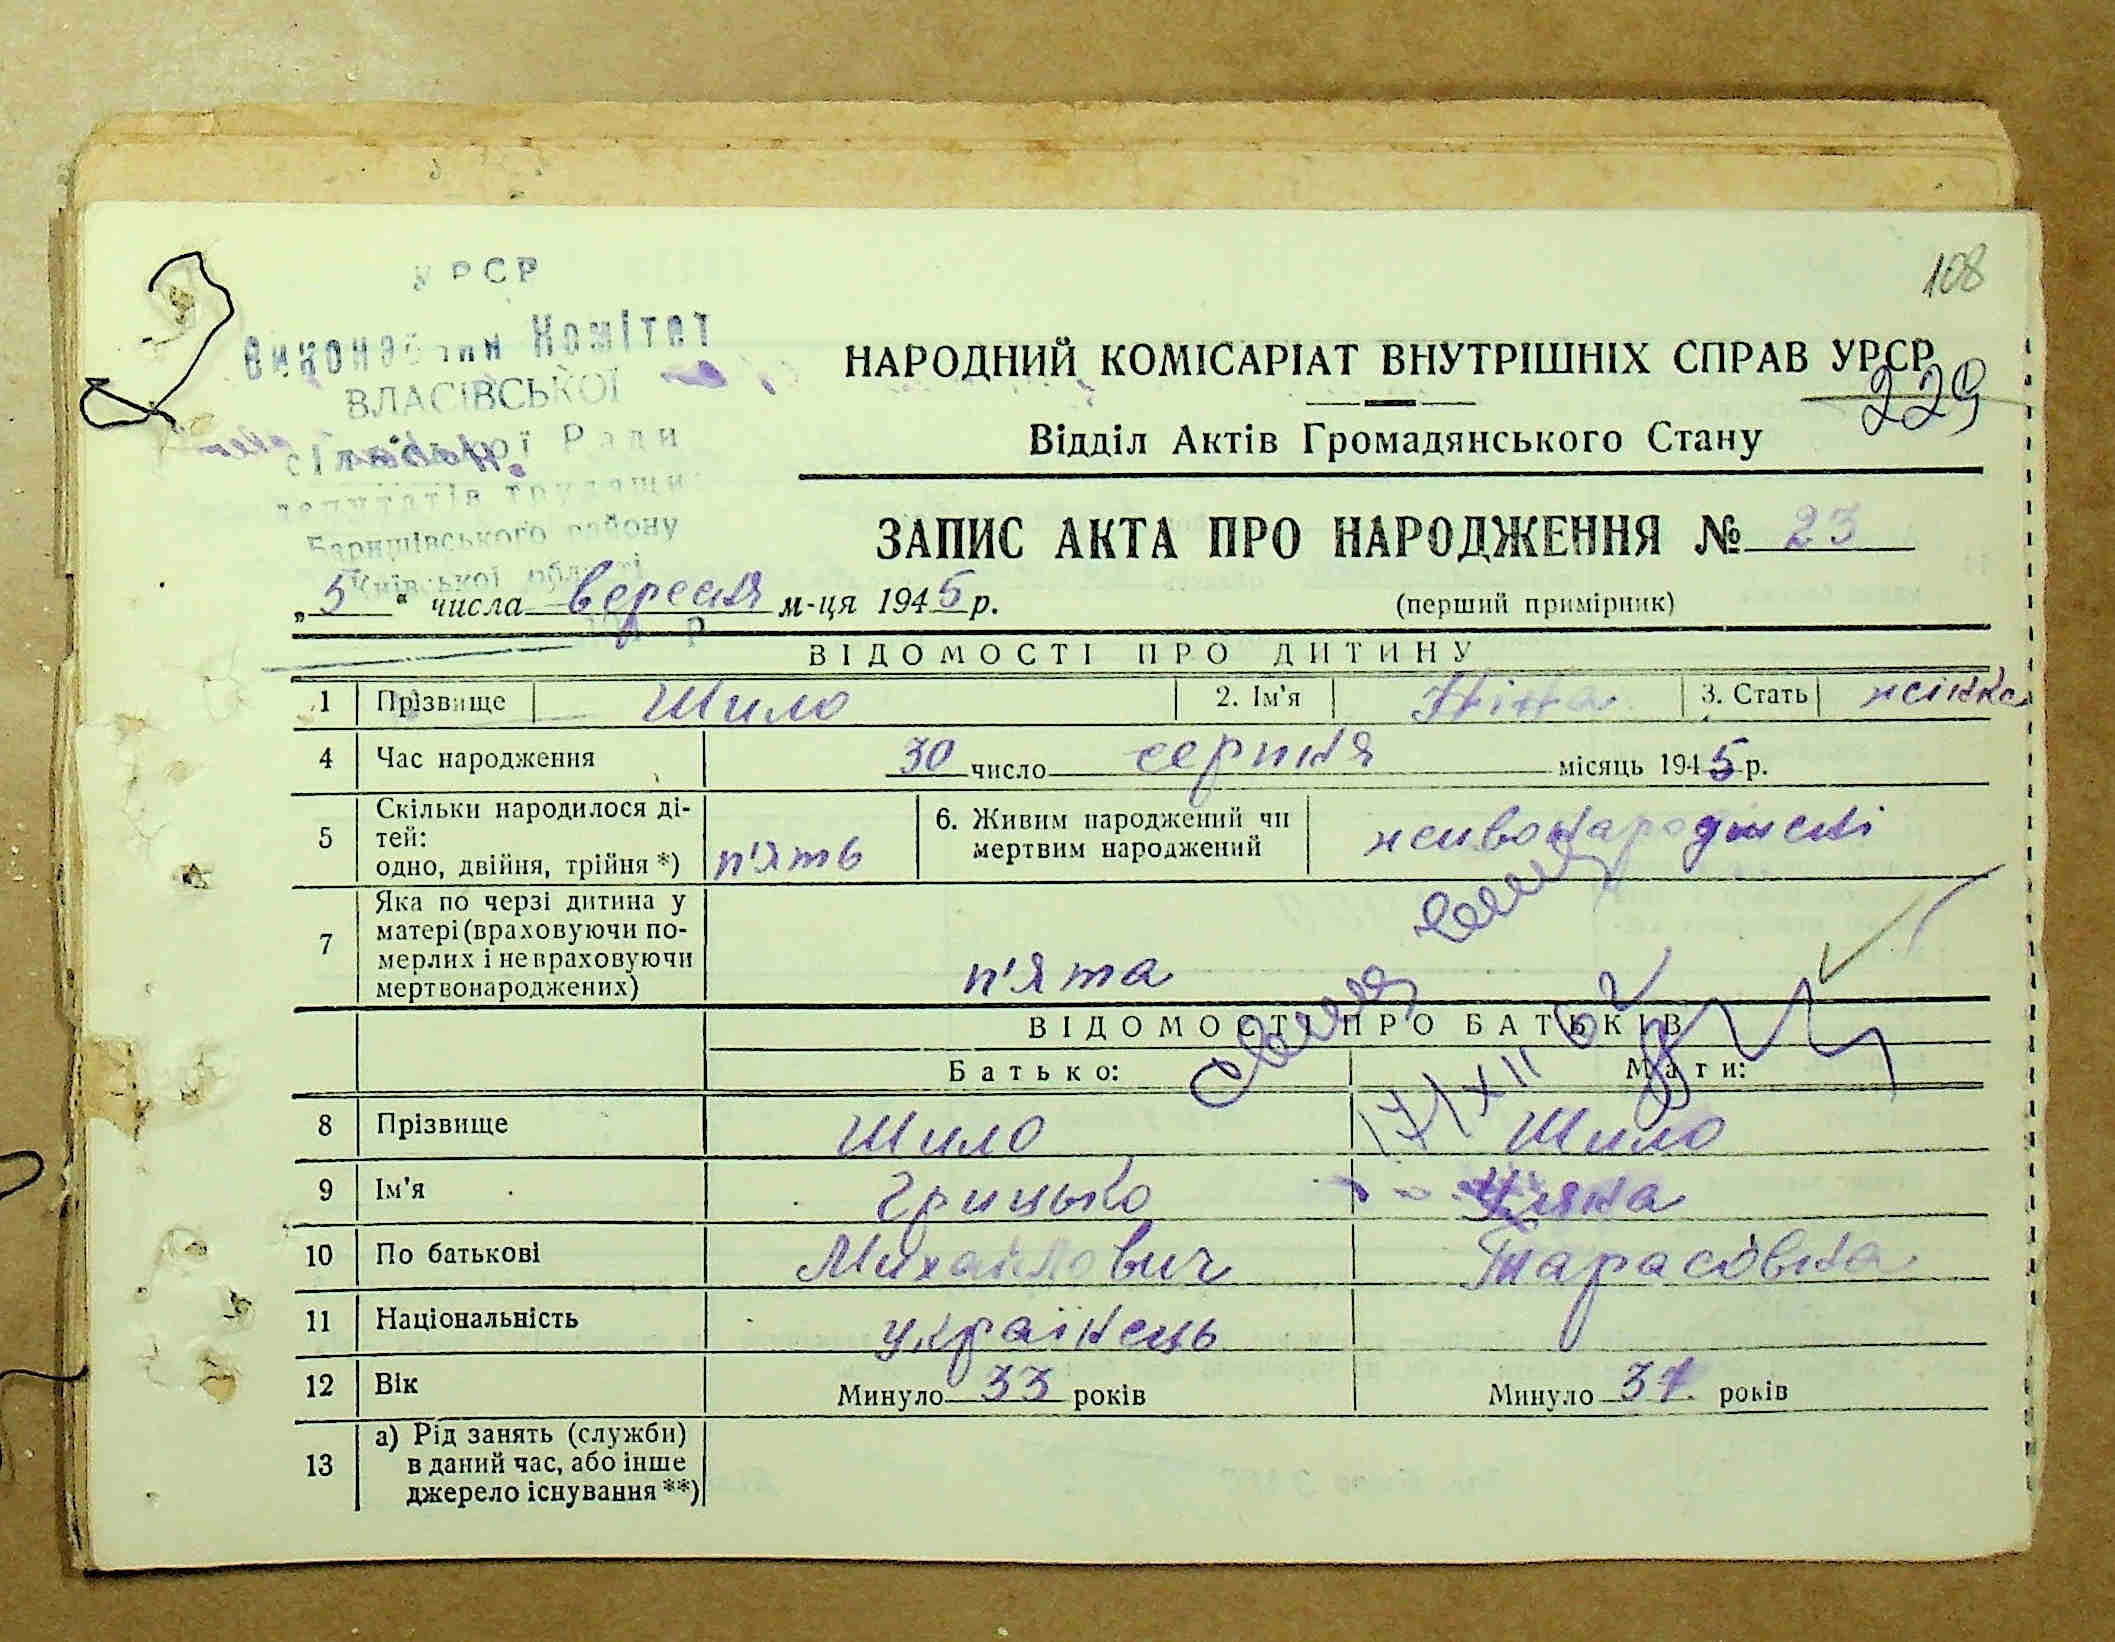 108
УРСР
Виконавчий Комітет
ВЛАСІВСЬКОЇ
сільської Ради
депутатів трудящи
Баришівського району
Київської області
НАРОДНИЙ КОМІСАРІАТ ВНУТРІШНІХ СПРАВ УРСР
229
Відділ Актів Громадянського Стану
ЗАПИС АКТА ПРО НАРОДЖЕННЯ № 23
„5“ числа вересня м-ця 1945 р.
(перший примірник)
ВІДОМОСТІ ПРО ДИТИНУ
1 Прізвище Шило 2. Ім'я Ніна 3. Стать жінка
4 Час народження 30 число серпня місяць 1945 р.
5 Скільки народилося ді-
тей:
одно, двійня, трійня *) п'ять
6. Живим народжений чи
мертвим народжений живонароджені
7 Яка по черзі дитина у
матері (враховуючи по-
мерлих і не враховуючи
мертвонароджених) п'ята
17/XII 62
ВІДОМОСТІ ПРО БАТЬКІВ
Батько: Мати:
8 Прізвище Шило Шило
9 Ім'я Грицько
10 По батькові Михайлович Тарасовна
11 Національність українець
12 Вік Минуло 33 років Минуло 37 років
13 а) Рід занять (служби)
в даний час, або інше
джерело існування **)